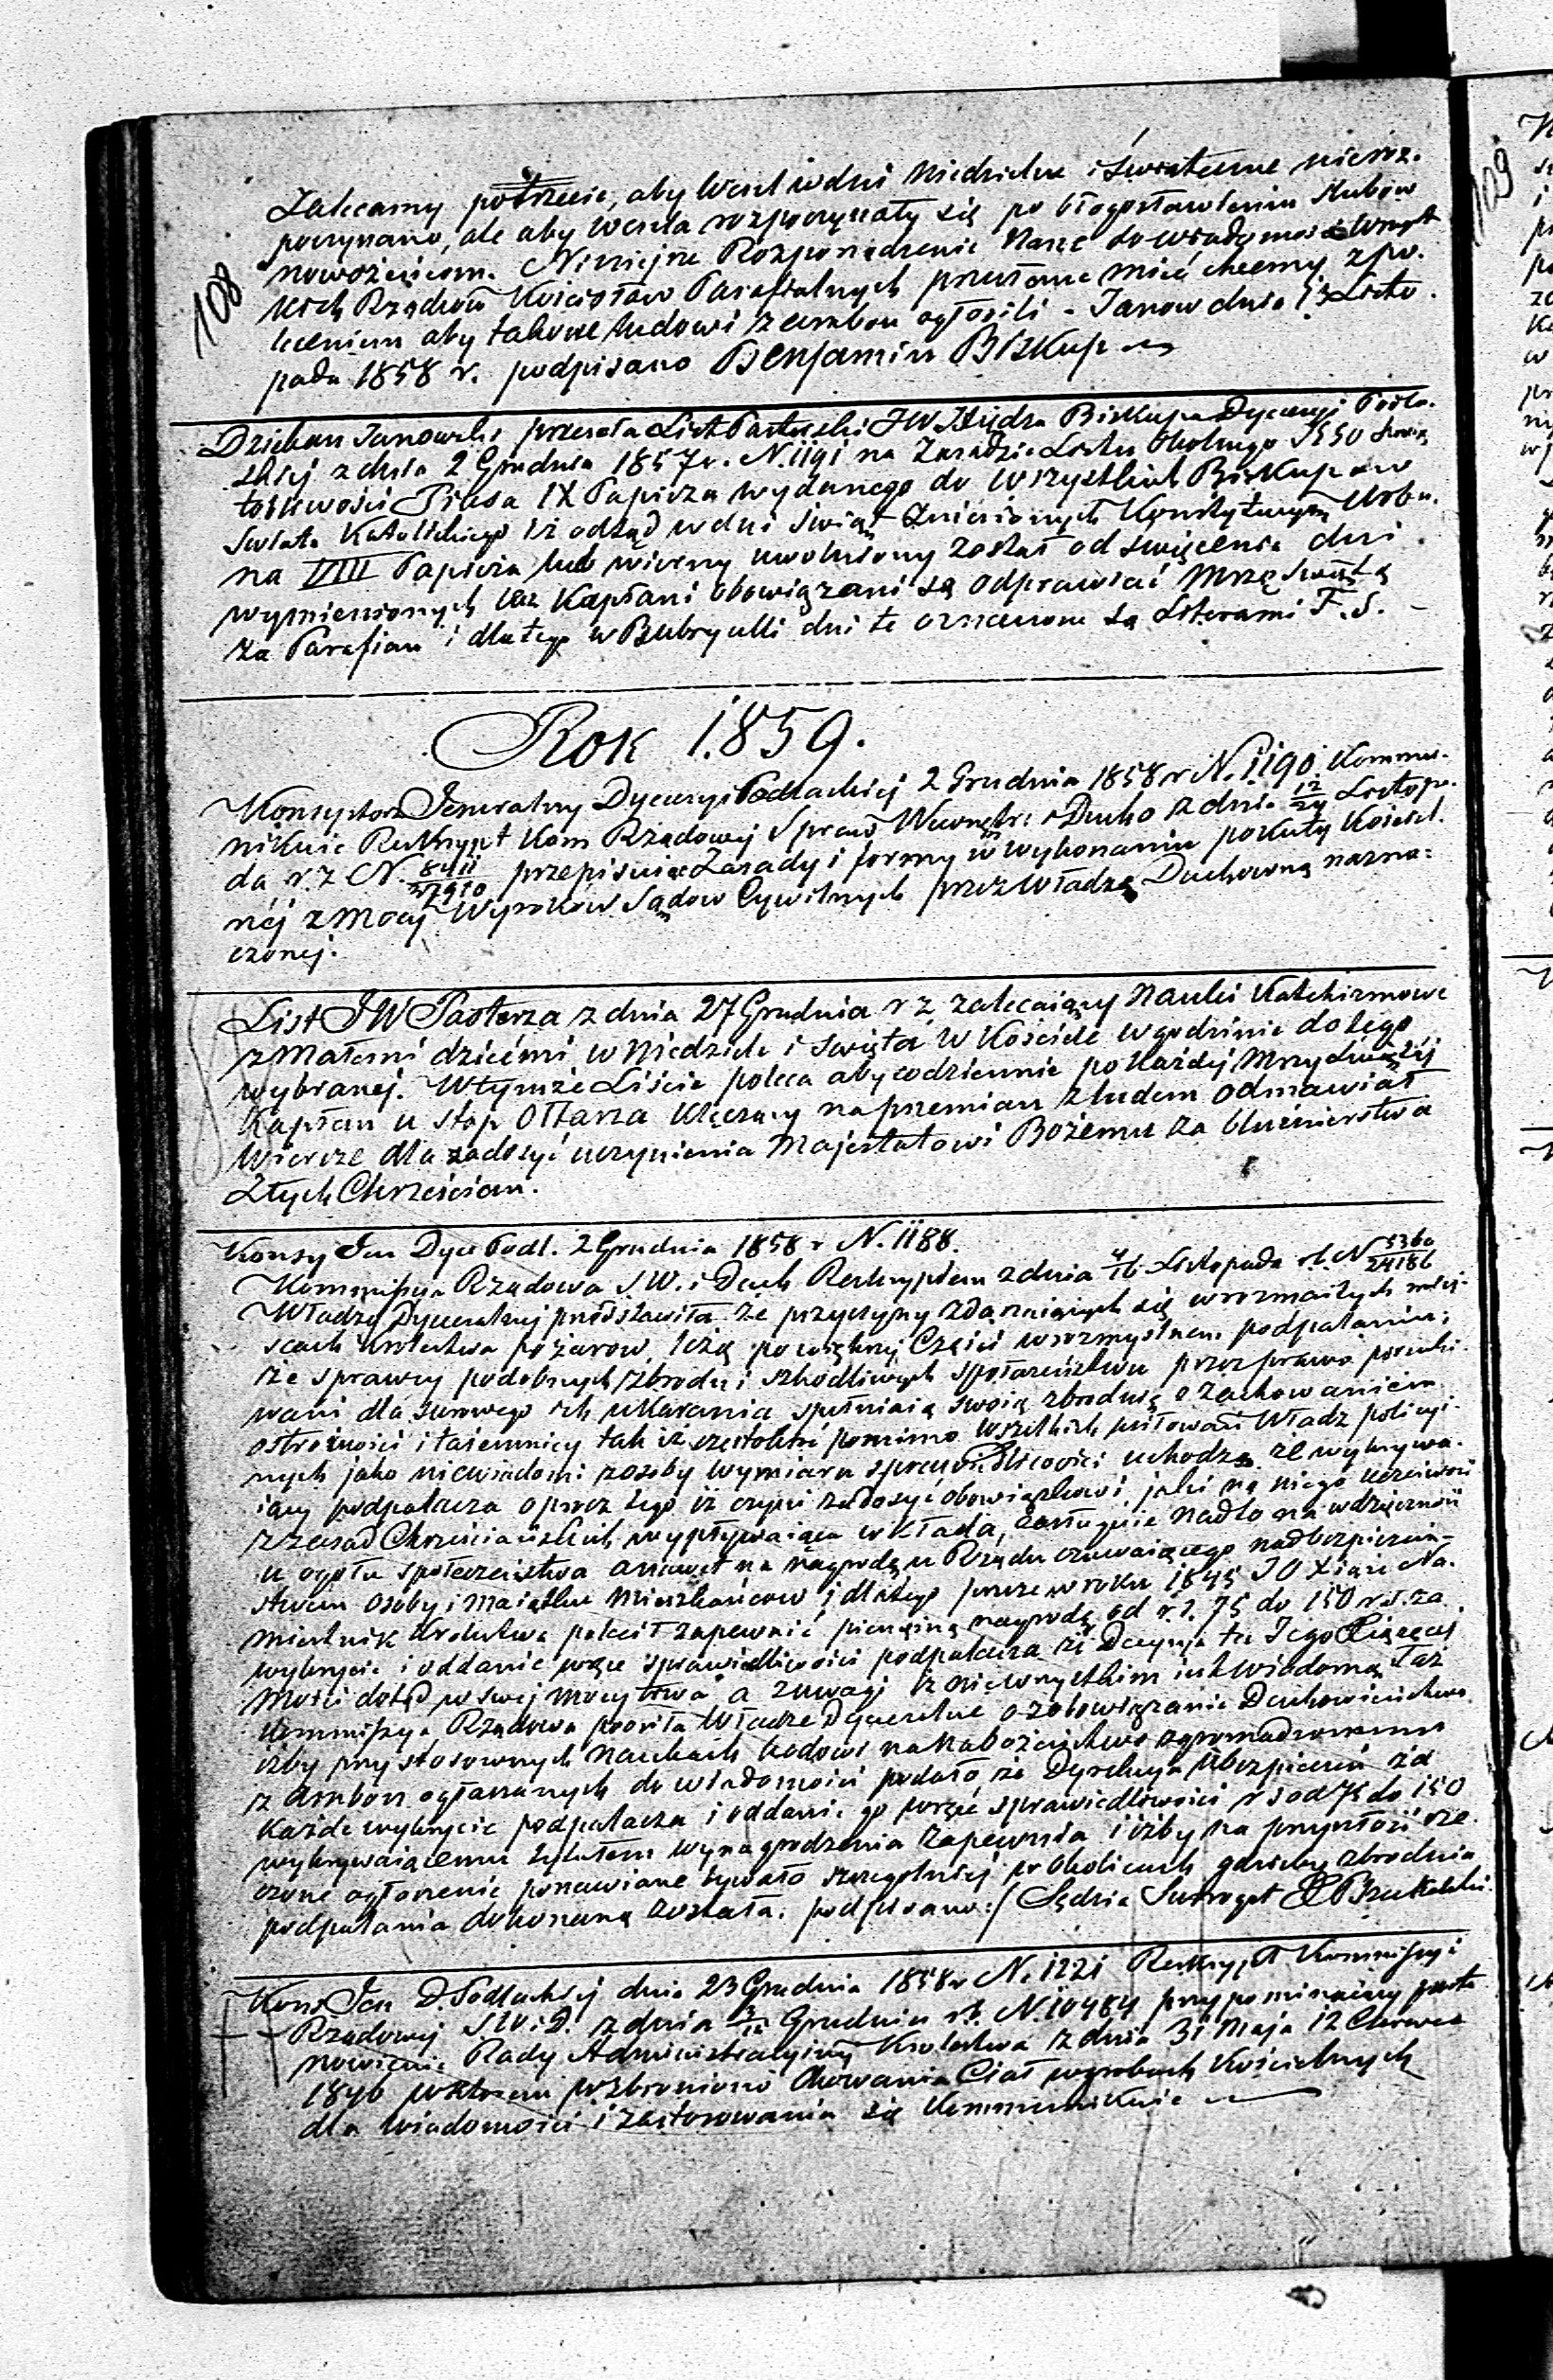 108
Zalecamy potrzecie, aby Wesel w dni Niedzielne i Świąteczne nieroz.
poczynano, ale aby wesela rozpoczynały się po błogosławieniu ślubów
nowożeńcom. Niniejsze Rozporządzenie Nasze do wiadomości Wszyst
kich Rządców Kościołów Parafialnych przesłane mieć chcemy z po.
leceniem aby takowe ludowi z ambon ogłosili - Janow dnia Listo.
pada 1858 r. podpisano Benjamin Biskup
Dziekan Janowski przesyła List Pasterski JW Xiędza Biskupa Dyecezyi Podla.
skiej z dnia 2 Grudnia 1857 r. N. 1191 na Zasadzie Listu Okolnego
Piusa IX Papieża wydanego do Wszystkich Biskupow
Swiata Katolickiego iż odtąd w dni świąt Zniesionych Konstytucyą Urba.
na VIII Papieża lud wierny uwolniony został od święcenia dni
wymienionych lecz Kapłani obowiązani są odprawiać Mszę Świętą
za Parafian i dlatego w Rubrycelli dni te oznaczone są Literami F. S. -
Rok 1859.
Konsystorz Jeneralny Dyecezyi Podlackiej 2 Grudnia 1858 r N. 1190. Kommu.
nikuie Reskrypt Kom Rządowej Spraw Wewnętr: i Ducho z dnia 12/24 Listopa.
da r. z N. przepisuiące Zasady i formy w wykonaniu pokuty Kościel.
néj z Mocy Wyroków Sądow Cywilnych przez Władzę Duchowną nazna:
czonej.
List JW Pasterza z dnia 27 Grudnia r z. zalecaiący Nauki Katechizmowe
z Małemi dziećmi w Niedziele i Swięta w Kościele w godzinie do tego
wybranej. W tymże Liście poleca aby codziennie po Każdej Mszy Świętej
Kapłan u stop Ołtarza klęczący naprzemian z ludem odmawiał
Wiersze dla zadosyć uczynienia Majestatowi Bożemu za bluźnierstwa
Złych Chrześcian.
Konsy Jen Dyec Podl. 2 Grudnia 1858 r N. 1188.
Kommissya Rządowa S. W. i Duch Reskryptem z dnia 4/16 Listopada r. b. N 5360/24186
Władzy Dyecezalnej przedstawiła że przyczyny zdarzaiących się w rozmaitych miej-
scach Krolestwa pożarow, leżą po większej Części w rozmyslnem podpalaniu;
że sprawcy podobnych zbrodni szkodliwych społeczeństwu przez prawo poszuki-
wani dla surowego ich ukarania spełniaią swoią zbrodnię z zachowaniem
ostrożności i taiemnicy tak iż częstokroć pomimo wszelkich usiłowań Władz policyj-
nych jako niewiadomi z osoby wymiaru sprawiedliwości uchodzą że wykrywa-
iący podpalacza oprocz tego iż czyni zadosyć obowiązkowi, jaki na niego uczciwość
z zasad Chrześciańskich wypływaiąca wkłada, zasługuie nadto na wdzięczność
u ogołu społeczeństwa a nawet na nagrodę u Rządu czuwaiącego nad bezpieczeń-
stwem osoby i maiątku Mieszkańcow i dlatego jeszcze w roku 1845 JO Xiąże Na.
miestnik Krolestwa polecił zapewnić pieniężną nagrodę od r. s. 75 do 150 r. s. za
wykrycie i oddanie w ręce sprawiedliwości podpalacza że Decyzja ta Jego Xiążęcej
Mości dotąd w swej mocy trwa a z uwagi iż nie wszystkim iest Wiadomą taż
Kommissya Rządowa prosiła Władze Dyecezalne o zobowiązanie Duchowieństwa
iżby przy stosownych Naukach ludowi na Nabożeństwo zgromadzonemu
z Ambon ogłaszanych do wiadomości podało że Dyrekcya Ubezpieczeń za
Każde wykrycie podpalacza i oddanie go w ręce sprawiedliwości r s od 75 do 150
wykrywaiącemu tytułem wynagrodzenia zapewnia i iżby na przyszłość rze
czone ogłoszenie ponawiane bywało szczegolniej w okolicach gdzieby zbrodnia
podpalania dokonaną została. podpisano:/ Sędzia Surrogat
Kons Jen D. Podlaskiej dnia 23 Grudnia 1858 r N. 1221 Reskrypt Kommissyi
Rządowej S. W. i D. z dnia Grudnia r. b. N. 10484 przypominaiący posta
nowienie Rady Administracyjnej Krolestwa z dnia 31 Maja 12 Czerwca
1846 w ktorem wzbroniono Chowania Ciał w grobach Kościelnych
dla wiadomości i zastosowania się Kommunikuie
109